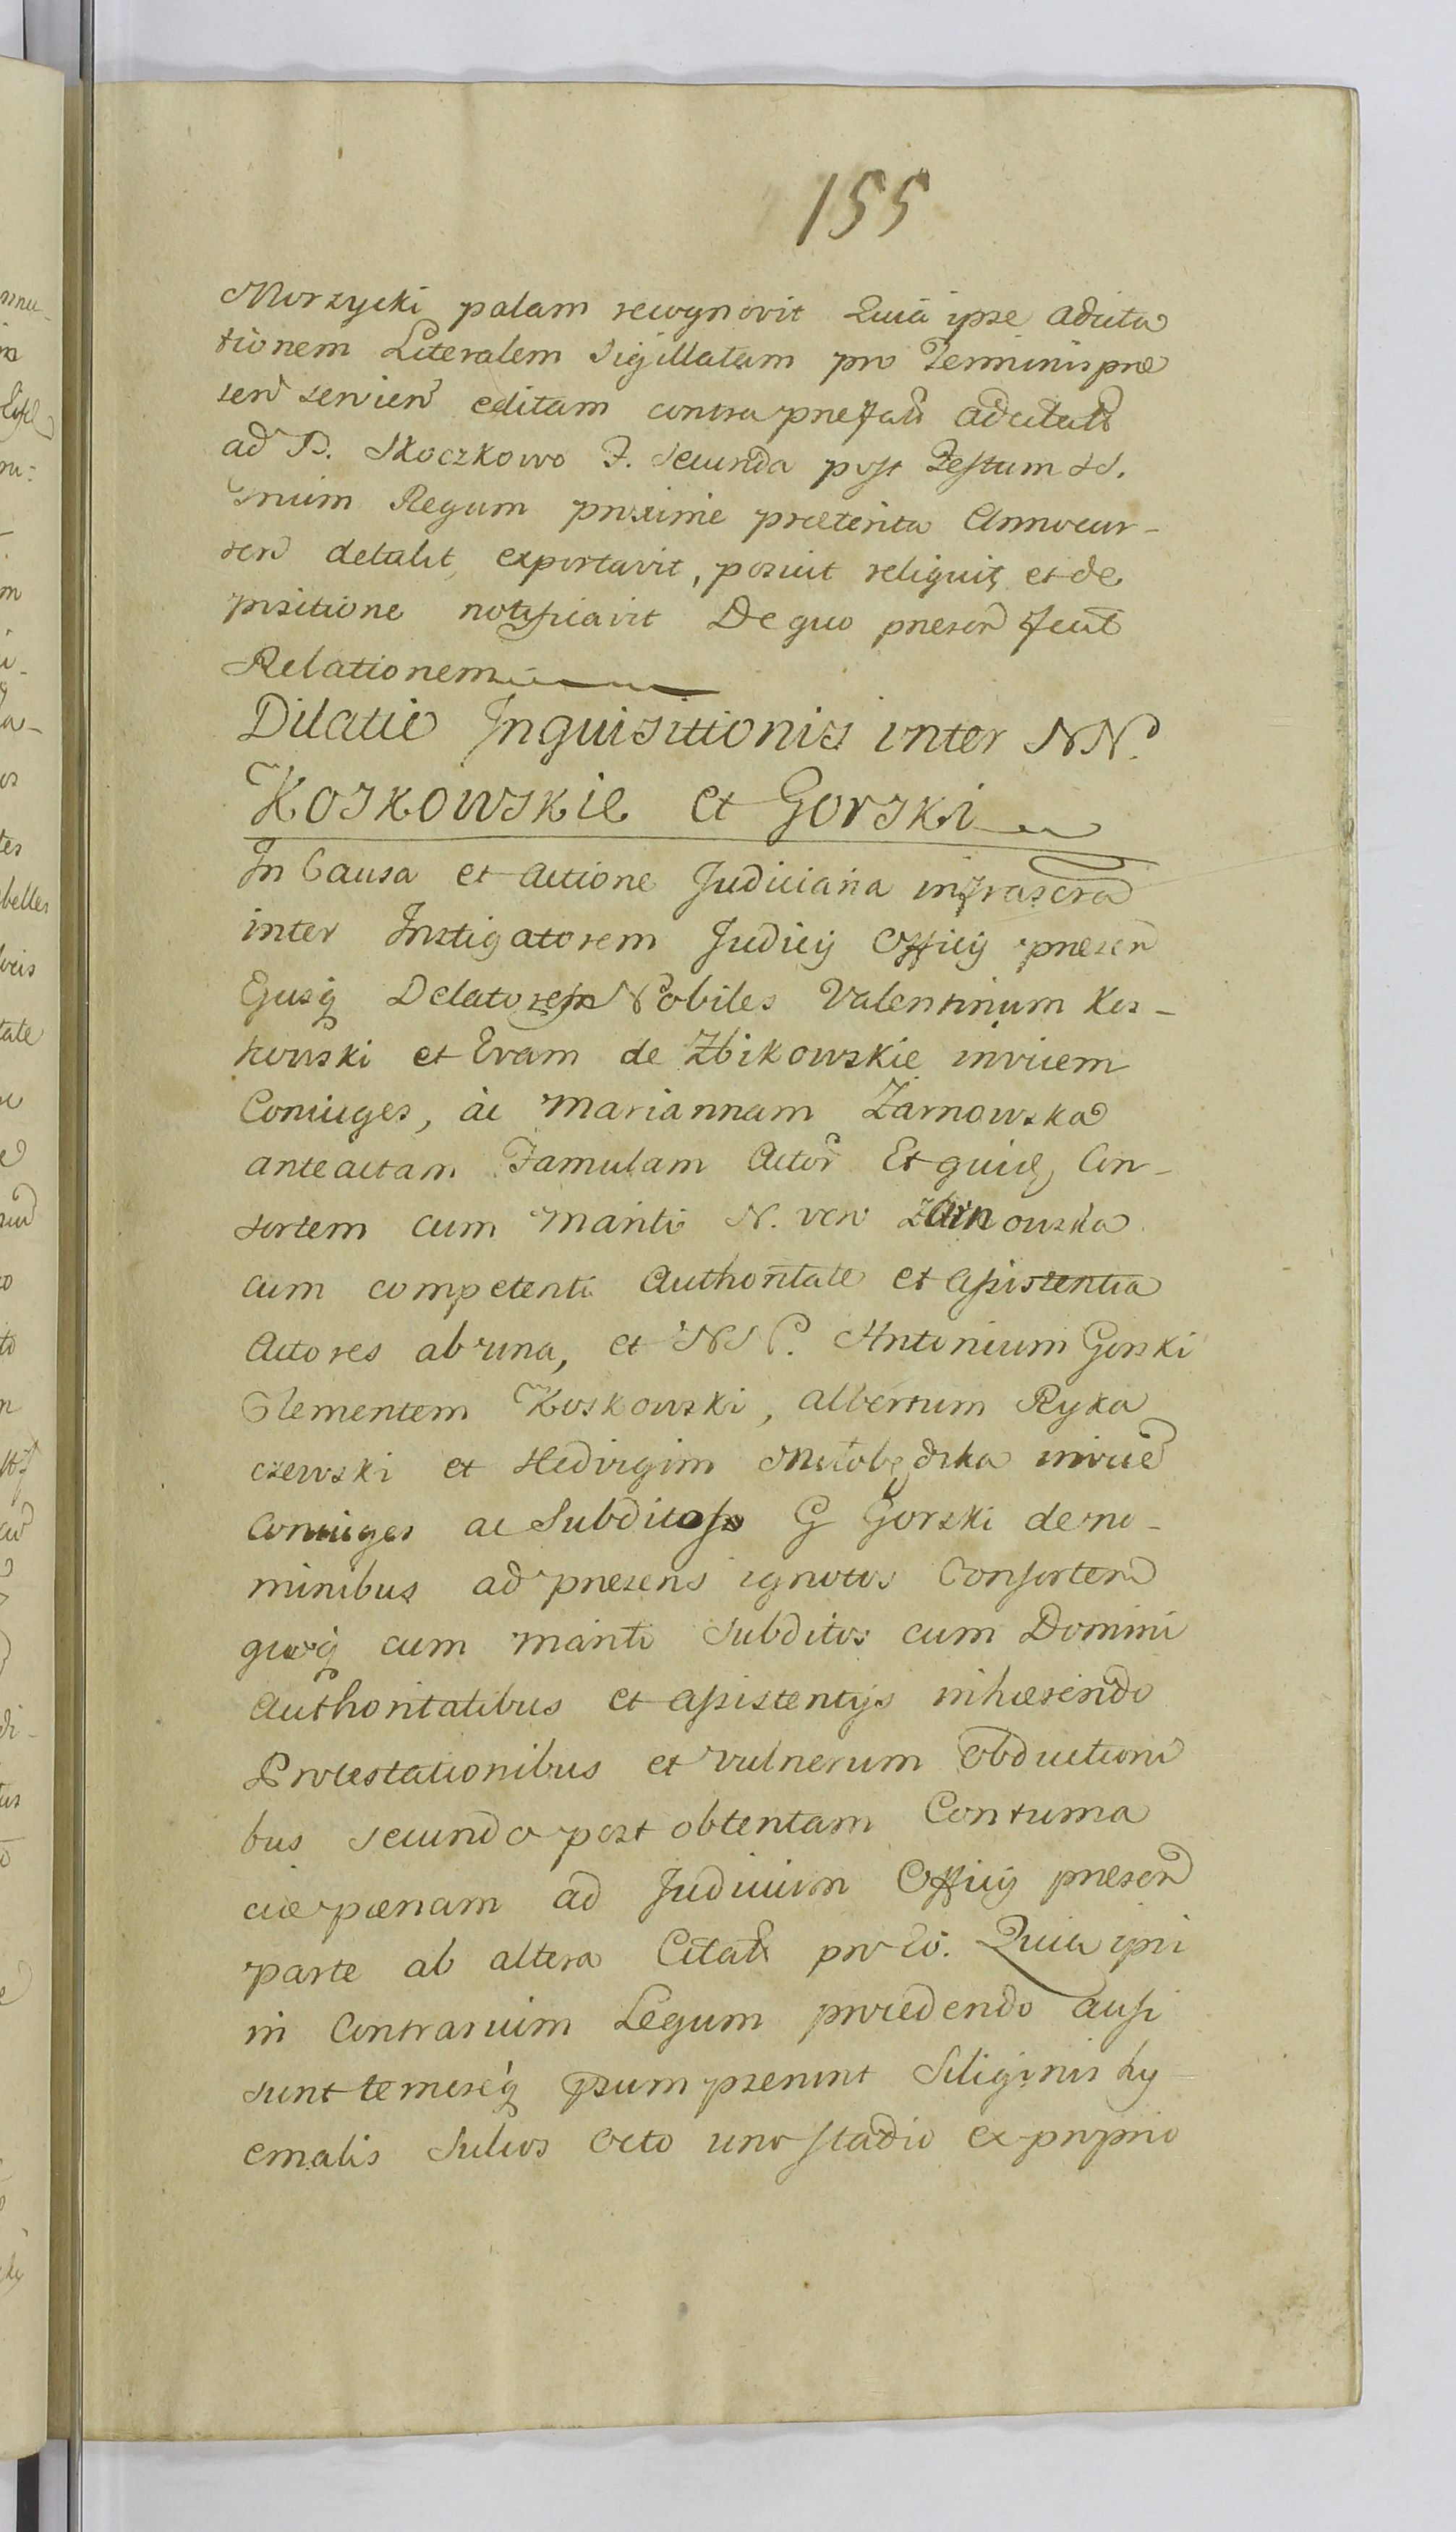 155
Morzycki palam recognovit Quia ipse adcita
tionem Literalem Sigillatam pro Terminis prae
sen servien editam contra praefat adcitat
ad B. Skoczkowo F. Secunda post Festum SS.
Trium Regum proxime praeterita Anno cur-
ren detulit, exportavit, posuit reliquit, et de
positione notificavit De quo praesen fecit
Relationem
Dilatio Inquisitionis inter NN.
Koskowskie et Gorski
In Causa et Actione Judiciaria infrascra
inter Instigatorem Judicij Officij praesen
Ejusq Delatores Nobiles Valentinum Kos-
kowski et Evam de Zbikowskie invicem
Coniuges, ac Mariannam Zarnowska
anteactam Famulam Actor Et quide, Con-
sortem cum Mariti N. vero Zarnowska
cum competenti Authoritate et assistentia
Actores ab una, et NN. Antonium Gorski
Clementem Koskowski, Albertum Ryka
czewski et Hedvigim Miłobędzka invice
Coniuges ac Subditos G Gorski de no-
minibus ad praesens ignotos Consortem
quoq cum mariti Subditos cum Domini
Authoritatibus et assistentijs inhaerendo
Protestationibus et Vulnerum Obductioni
bus secundo post obtentam Contuma
ciae paenam ad Judicium Officij praesen
parte ab altera Citat pro Eo. Quia ipsi
in Contrarium Legum procedendo ausi
sunt temereq praesumpserunt Siliginis hy
emalis Sulcos Octo uno stadio ex proprio